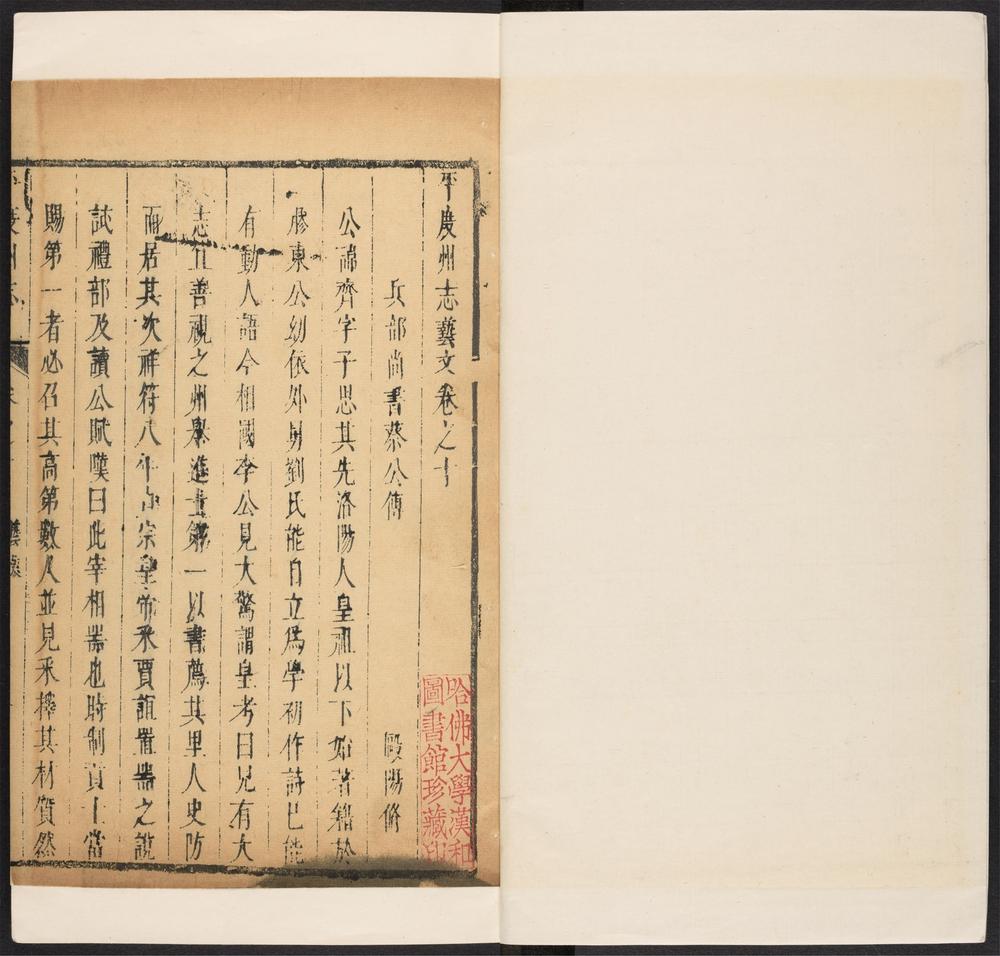 平度州志藝文卷之十
兵部尚書蔡公傳
歐陽脩
公諱齊字子思其先洛陽人皇祖以下始著籍於
膠東公幼依外舅劉氏能自立為學初作詩已能
有動人語今相國李公見大驚謂皇考曰兒有大
志宜善視之州舉進士第一以書薦其里人史防
而居其次祥符八年真宗皇帝采賈誼置器之說
試禮部及讀公賦嘆曰此宰相器也時制貢士當
賜第一者必召其高第數人並見釆擇其材質然
哈佛大學漢和
圖書館珍藏印